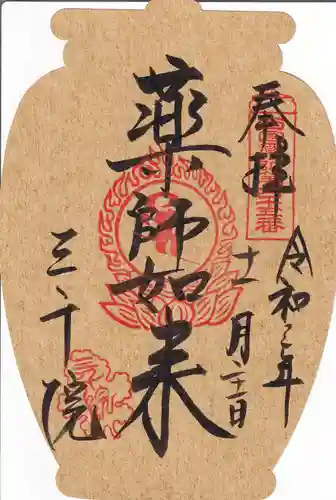 奉拝
令和二年
十一月二十一日
薬師如来
三千院